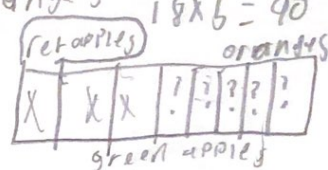 18x5=90
ret apples
oranges
X X X ? ? ? ? ?
green apples